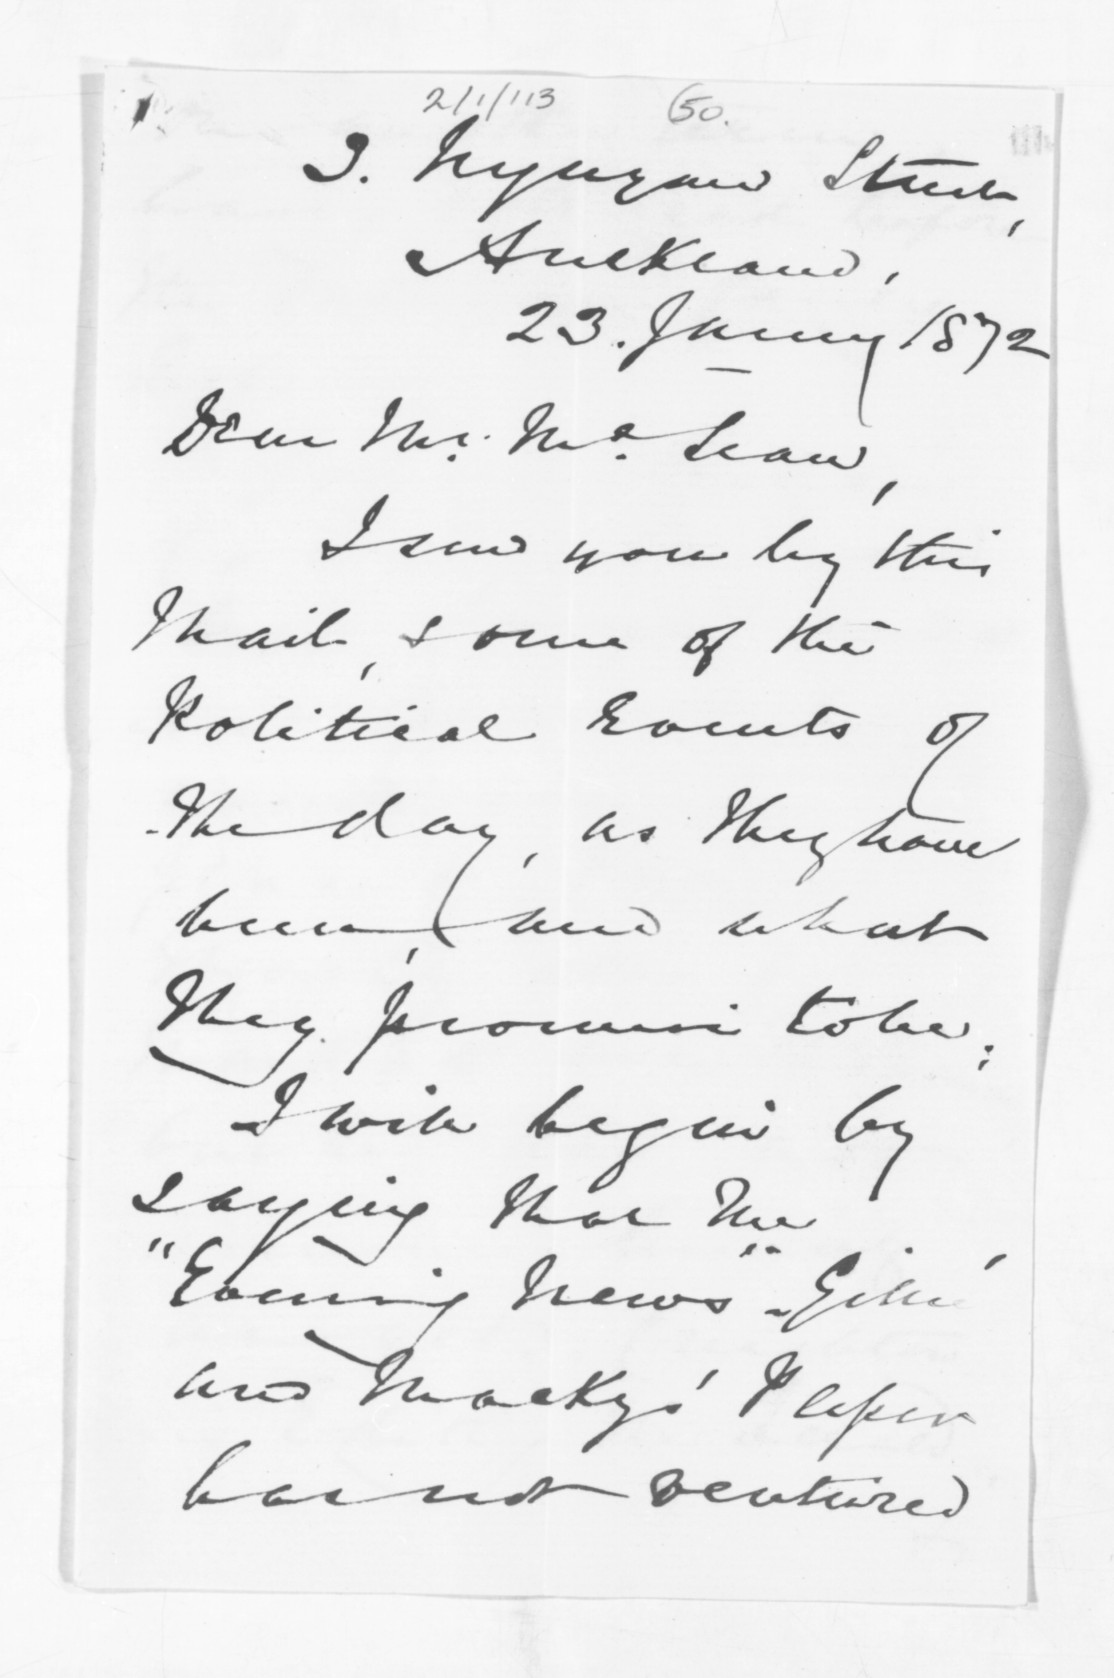 2/1/113 50.
3. Wynyard Street,
Auckland,
23. Jany 1872
Dear Mr. McLean,
I send you by this
Mail, some of the
Political Events of
the day, as they have
been, and what
they promise to be:
I will begin by
saying that the
"Evening News" - Gillies'
and Macky's' Paper
has not ventured